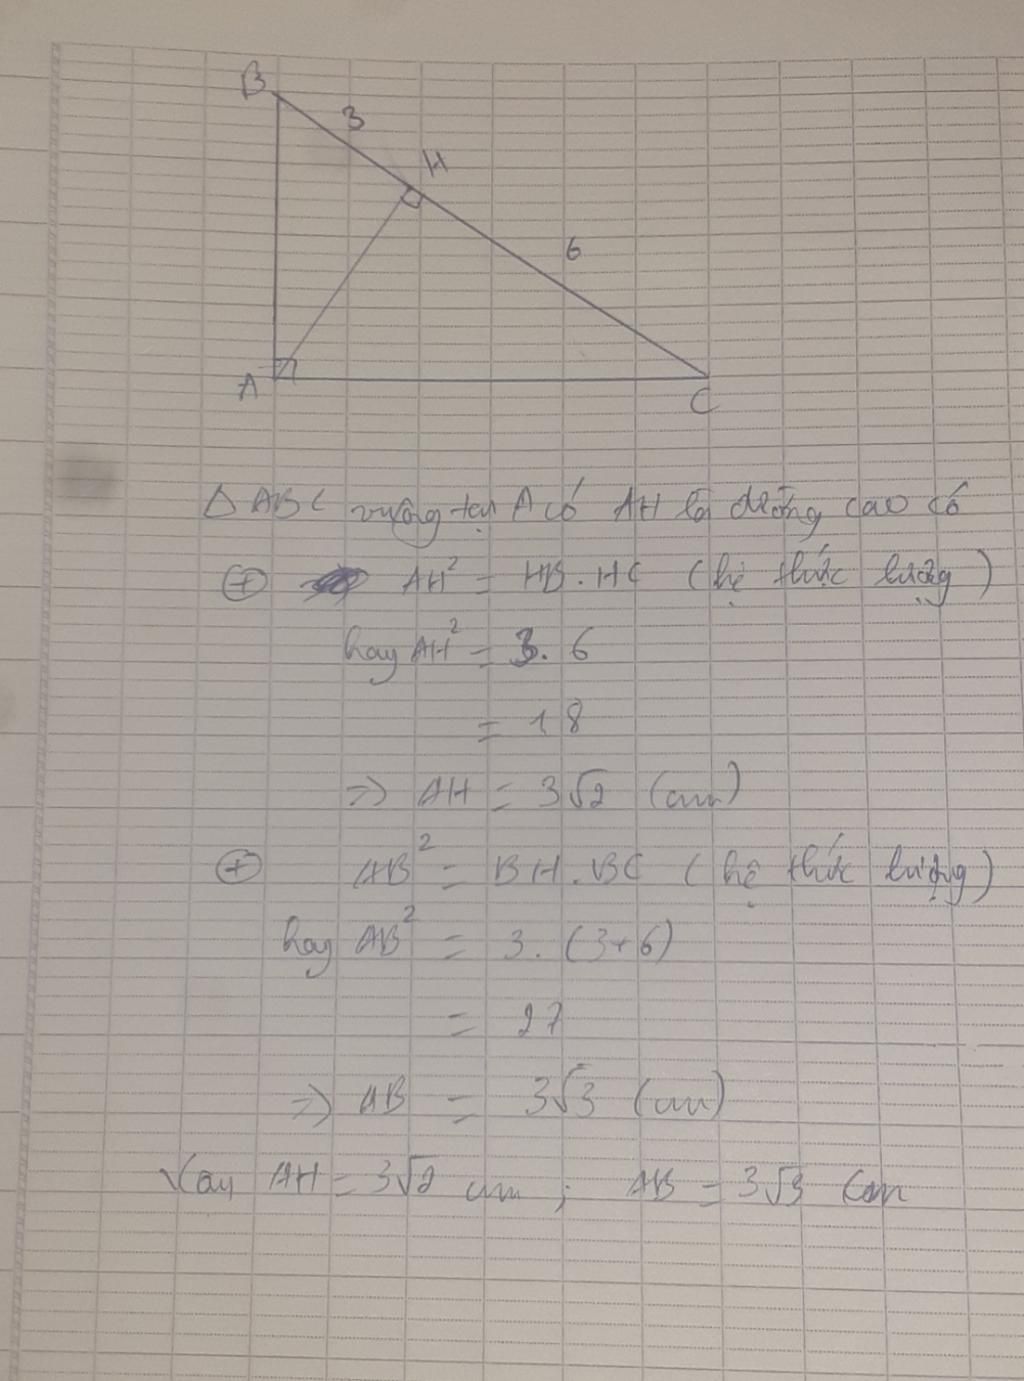 B
3
H
6
A
C
Δ ABC vuông tại A có AH là đường cao có
⊕ AH² = HB . HC (hệ thức lượng)
hay AH² = 3 . 6
= 18
=> AH = 3√2 (cm)
⊕ AB² = BH . BC (hệ thức lượng)
hay AB² = 3 . (3+6)
= 27
=> AB = 3√3 (cm)
Vậy AH = 3√2 cm ; AB = 3√3 cm